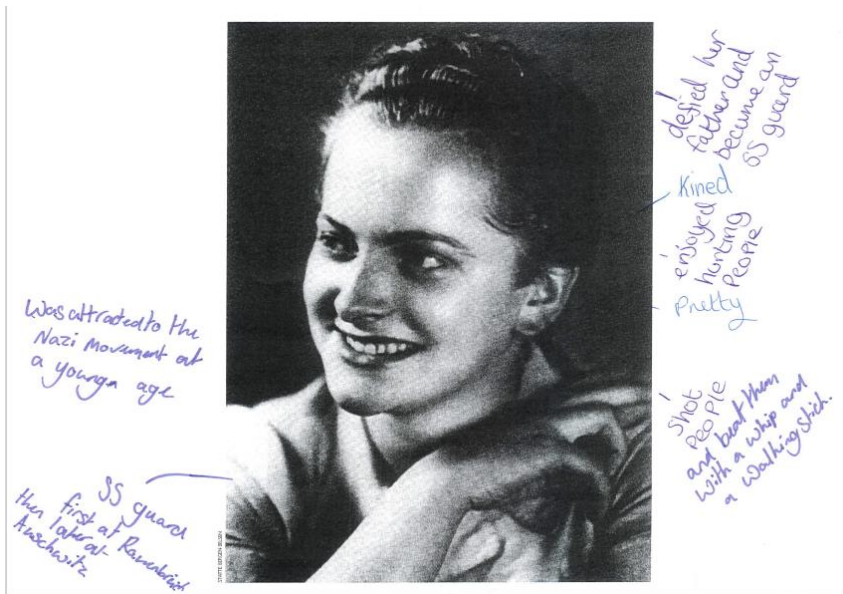 was attrated to the
Nazi Movement at
a younga age
SS guard
first at Ravenbrück
then later at
Auschwitz
defied her
father and
become an
SS guard
Kined
enjoyed
hurting
People
Pretty
Shot
People
and beat them
with a whip and
a walking stich.